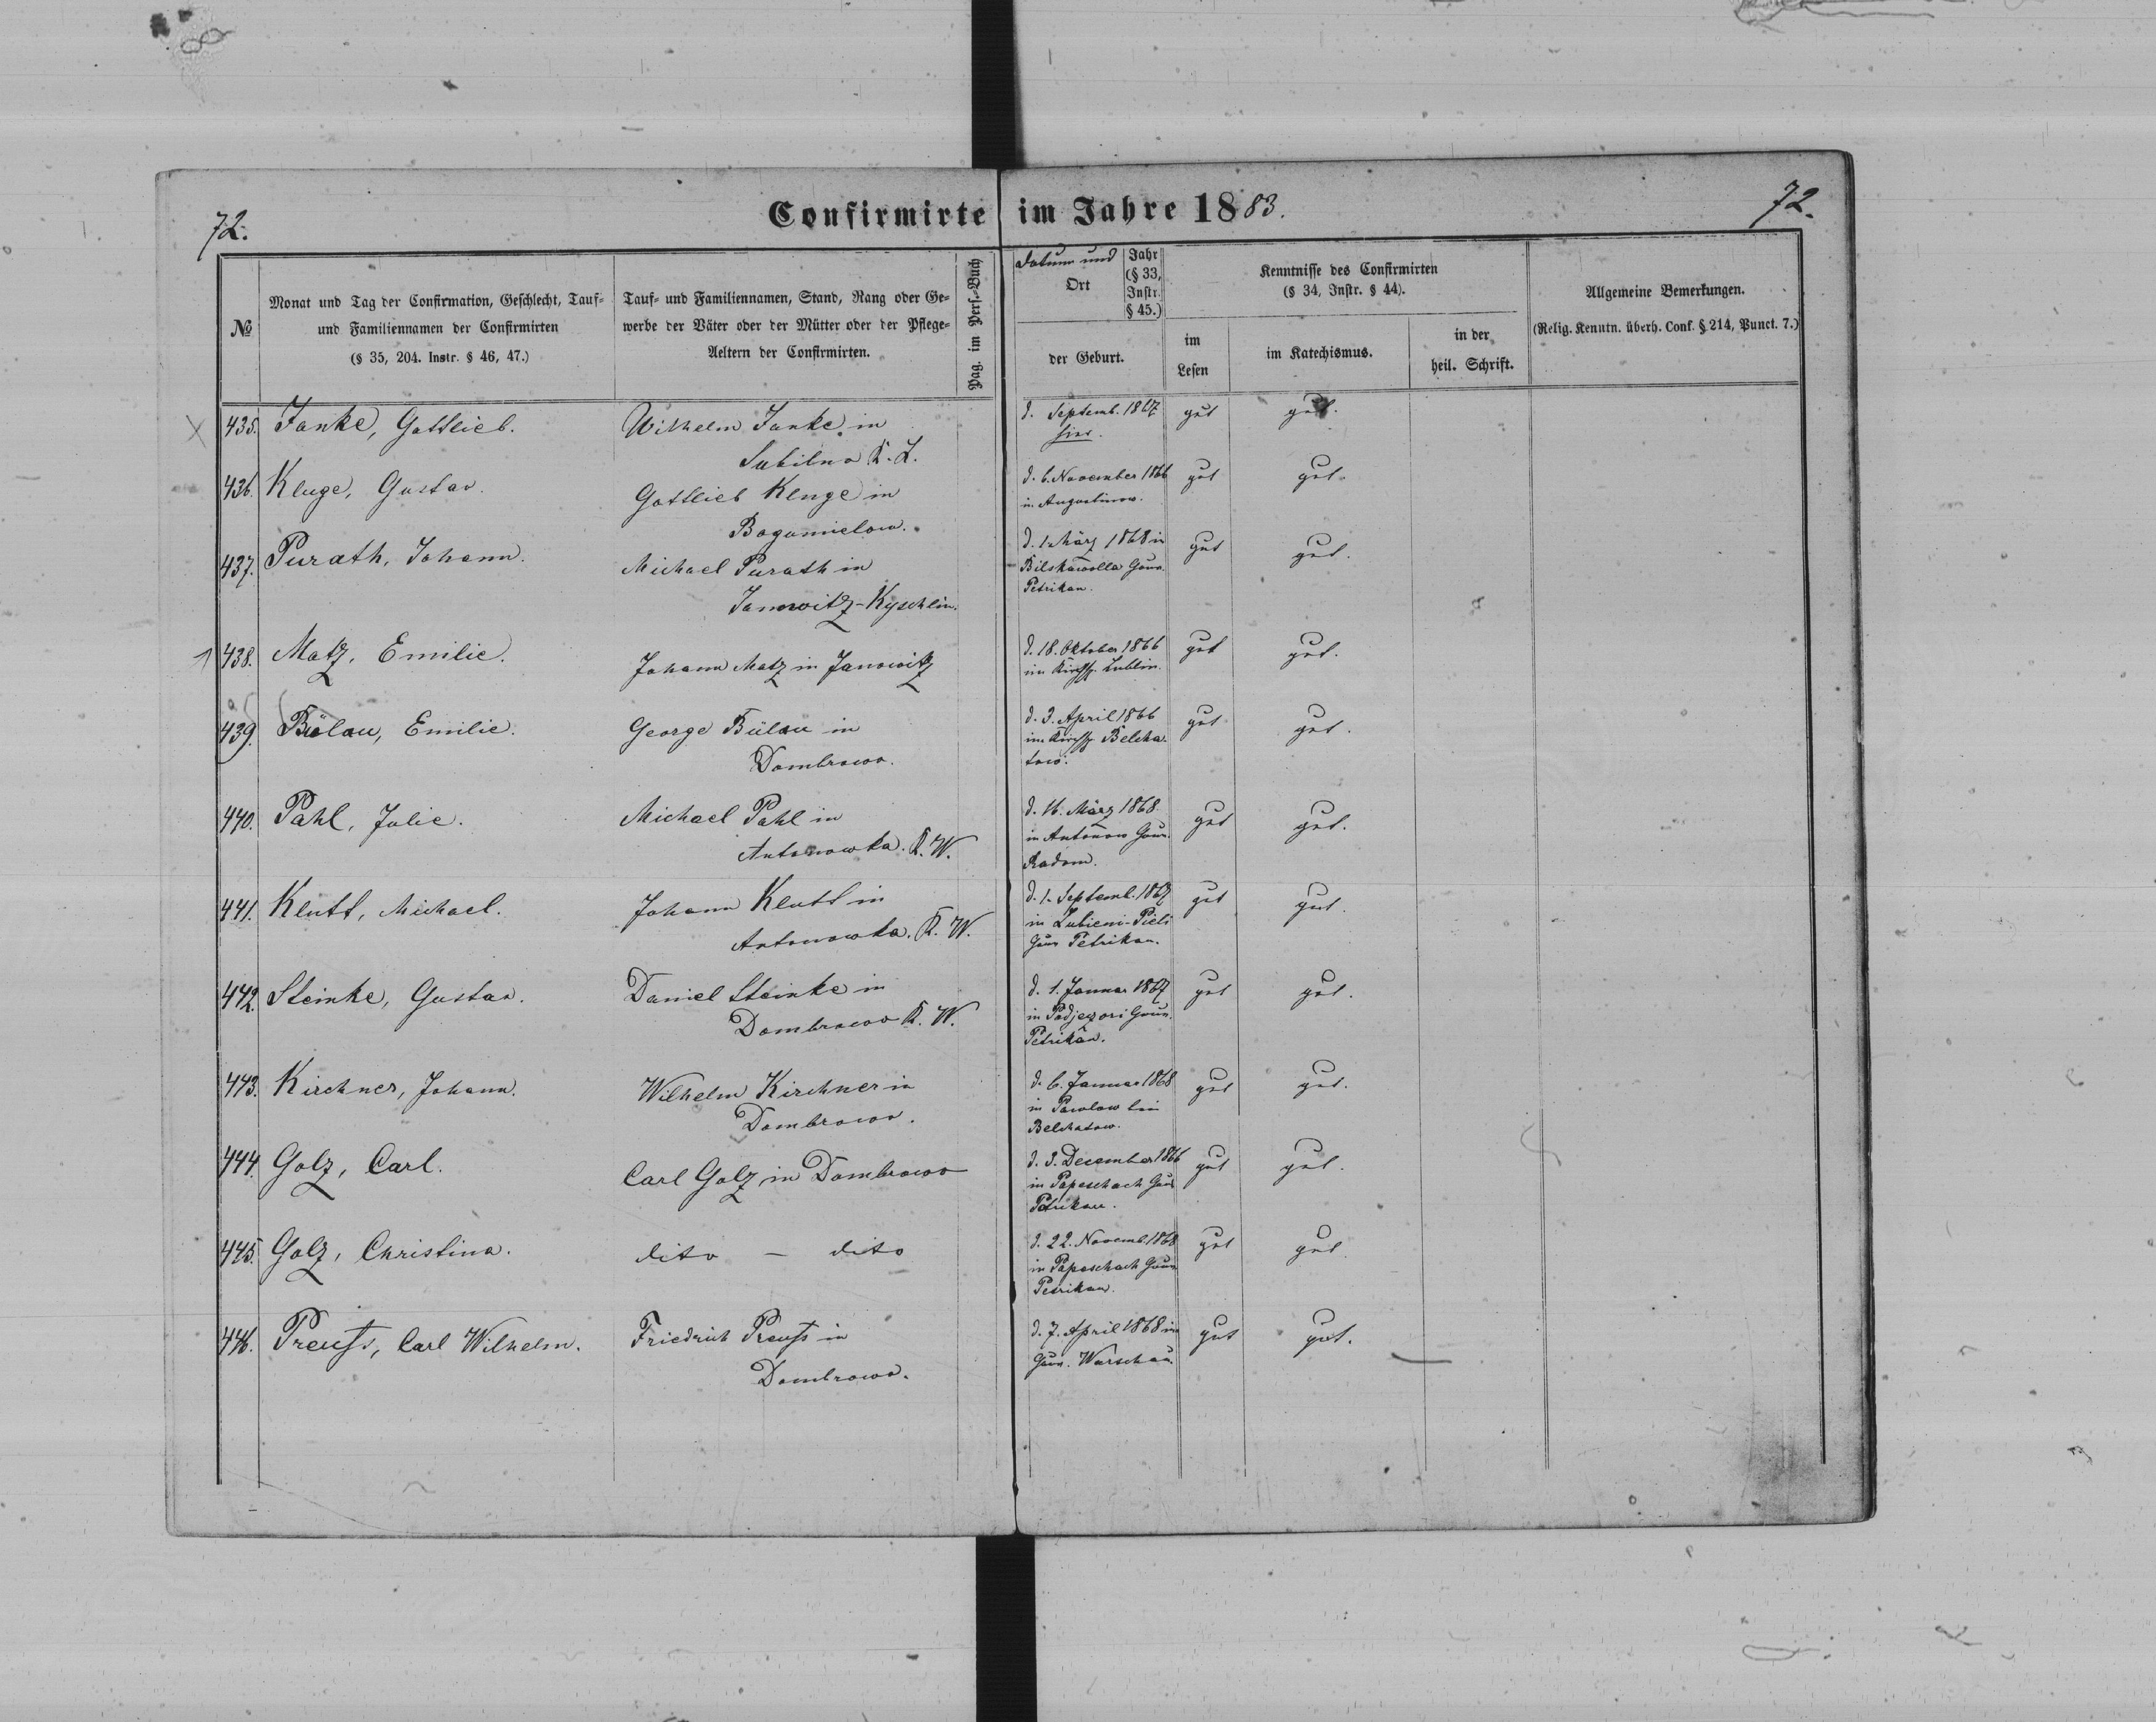 72.
Confirmirte im Jahre 1883.
72.
№
Monat und Tag der Confirmation, Geschlecht, Tauf-
und Familiennamen der Confirmirten
(§ 35, 204. Instr. § 46, 47.)
Tauf- und Familiennamen, Stand, Rang oder Ge-
werbe der Väter oder der Mütter oder der Pflege-
Aeltern der Confirmirten.
Pag. im Pers.-Buch
Datum und
Ort
Jahr
(§ 33,
Instr.
§ 45.)
der Geburt.
Kenntnisse des Confirmirten
(§ 34, Instr. § 44).
im
Lesen
im Katechismus.
in der
heil. Schrift.
Allgemeine Bemerkungen.
(Relig. Kenntn. überh. Conf. § 214, Punct. 7.)
435. Janke, Gottlieb. Wilhelm Janke in d. Septemb. 1867 gut gut.
Subilno K. L. hier.
436. Kluge, Gustav. Gottlieb Kluge in d. 6. November 1866 gut gut.
Bogumielow. in Augustinow.
437. Purath, Johann. Michael Purath in d. 1. März 1868 in gut gut.
Janowitz-Kyschlin. Bilskawolla Gouv.
Petrikau.
438. Matz, Emilie. Johann Matz in Janowitz d. 18. Oktober 1866 gut gut.
im Kirchsp. Lublin.
439. Bülau, Emilie. George Bülau in d. 3. April 1866 gut gut.
Dombrowo. im Kirchsp. Belcha-
tow.
440. Pahl, Julie. Michael Pahl in d. 16. März 1868. gut gut.
Antonowka. K. W. in Antonow Gouv.
Radom.
441. Klutt, Michael. Johann Klutt in d. 1. Septemb. 1867 gut gut.
Antonowka. K. W. in Lubieni-Pieli
Gouv. Petrikau.
442. Steinke, Gustav. Daniel Steinke in d. 1. Januar 1867 gut gut.
Dombrowo K. W. in Padjezori Gouv.
Petrikau.
443. Kirchner, Johann. Wilhelm Kirchner in d. 6. Januar 1868 gut gut.
Dombrowo. in Pawlow bei
Belchatow.
444. Golz, Carl. Carl Golz in Dombrowo d. 3. December 1866 gut gut.
in Papeschach Gouv
Petrikau.
445. Golz, Christina. dito — dito d. 22. Novemb. 1868 gut gut.
in Papeschach Gouv
Petrikau.
446. Preuss, Carl Wilhelm. Friedrich Preuss in d. 7. April 1868 im gut gut.
Dombrowo. Gouv. Warschau.